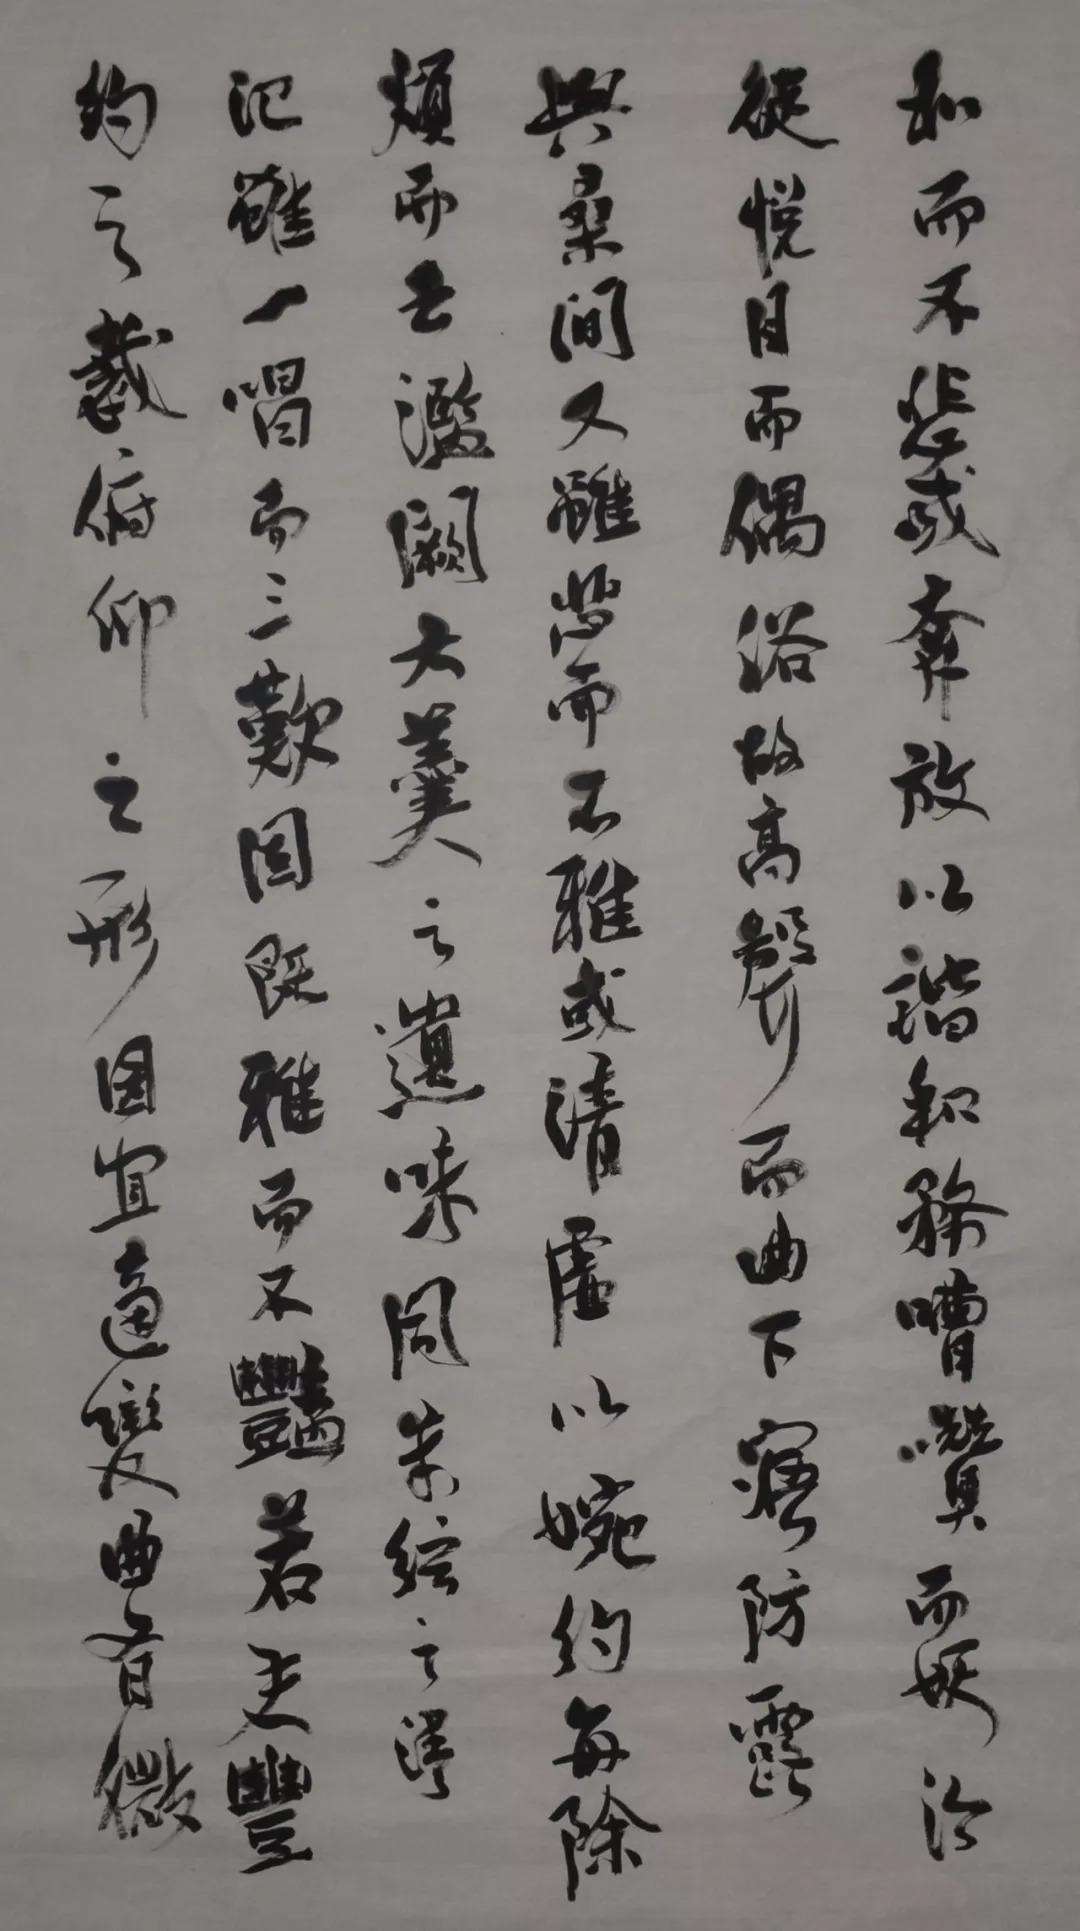 和而不悲或奔放以諧和務嘈囋而妖冶
徒悅目而偶俗故高聲而曲下寤防露
與桑間又雖悲而不雅或清虛以婉約每除
煩而去濫闕大羹之遺味同朱絃之清
氾雖一唱而三歎固既雅而不豔若夫豐
約之裁俯仰之形因宜適變曲有微